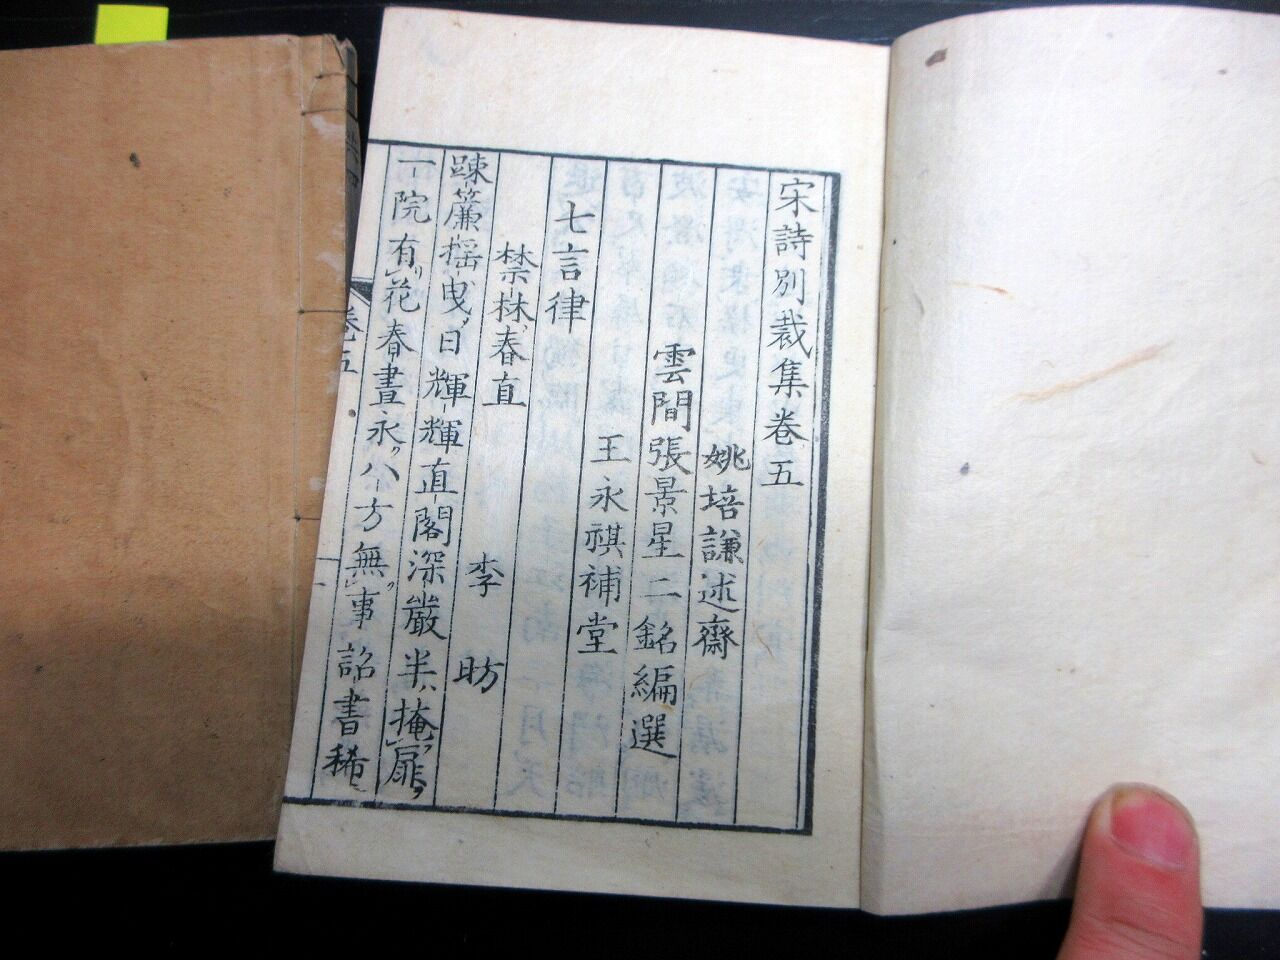 宋詩別裁集卷五
姚培謙述齋
雲間張景星二銘編選
王永祺補堂
七言律
禁林春直
李昉
踈簾搖曳日輝輝直閣深嚴半掩扉
一院有花春晝永八方無事詔書稀
卷五